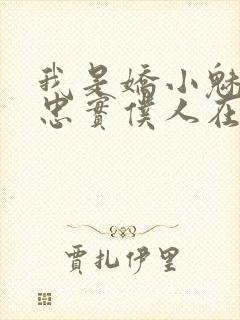 我是嬌小魅
忠實僕人在
賈扎伊里